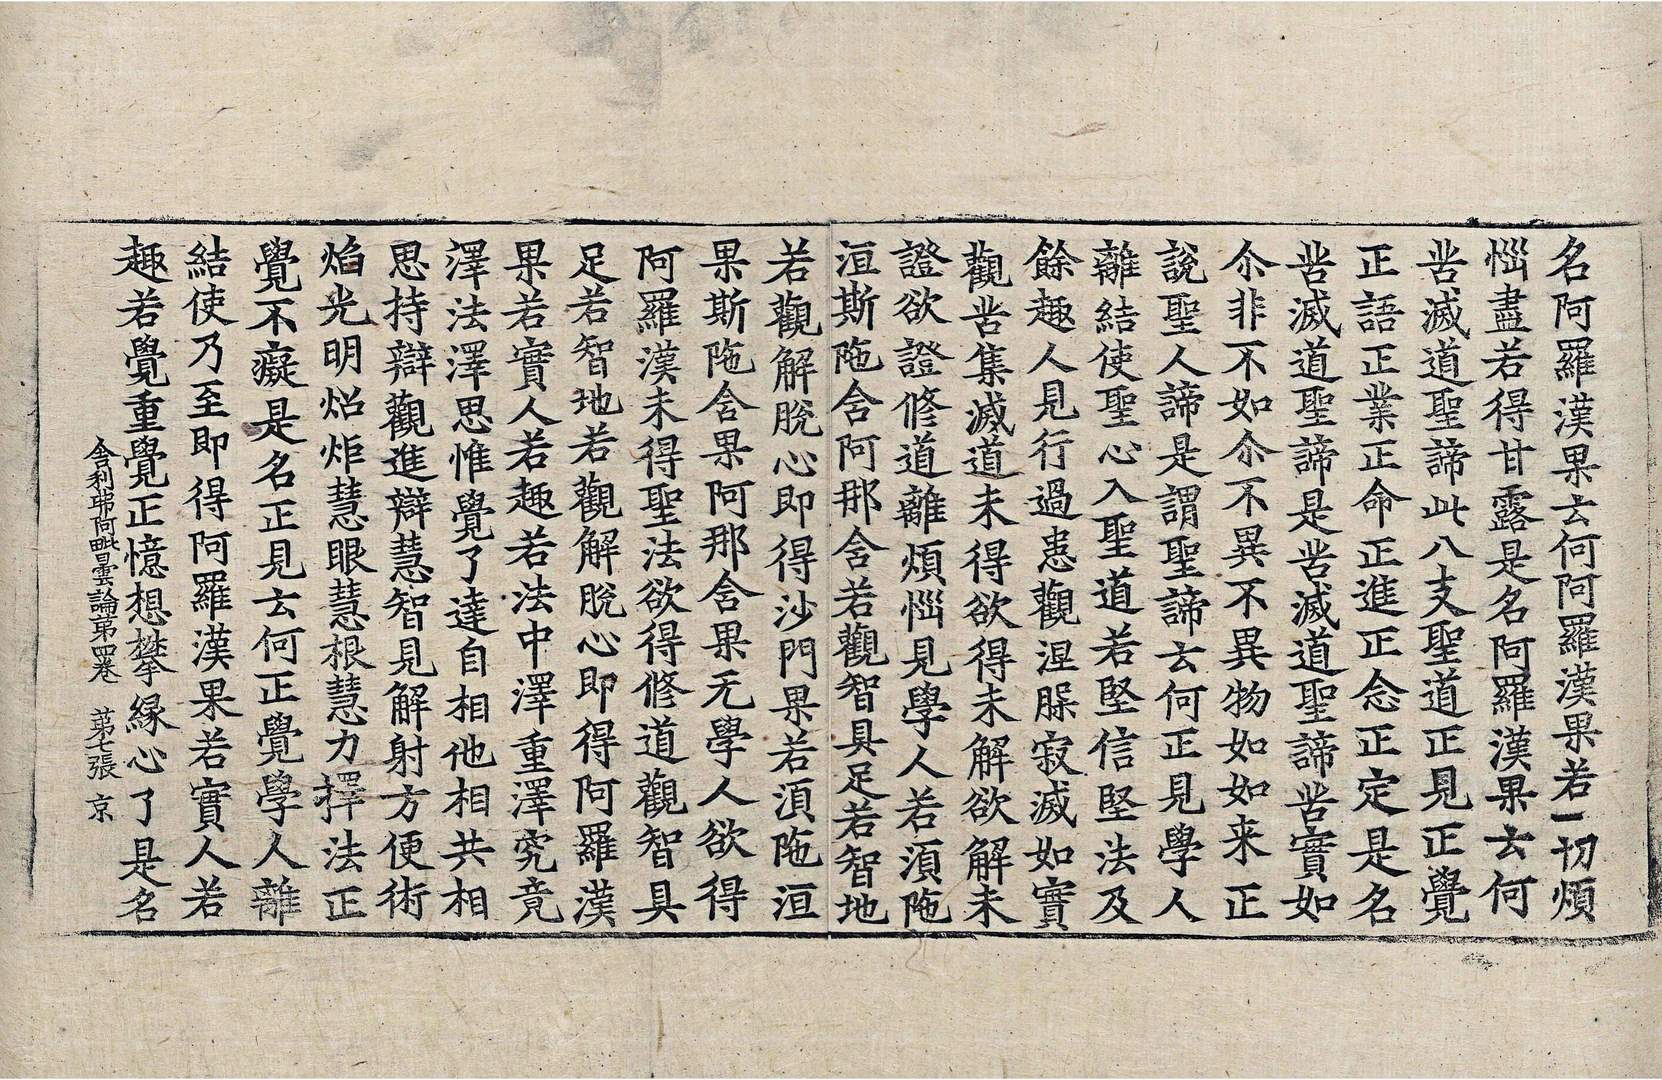 名阿羅漢果云何阿羅漢果若一切煩
惱盡若得甘露是名阿羅漢果云何
苦滅道聖諦此八支聖道正見正覺
正語正業正命正進正念正定是名
苦滅道聖諦是苦滅道聖諦苦實如
尒非不如尒不異不異物如如来正
說聖人諦是謂聖諦云何正見學人
離結使聖心入聖道若堅信堅法及
餘趣人見行過患觀涅槃寂滅如實
觀苦集滅道未得欲得未解欲解未
證欲證修道離煩惱見學人若湏陁
洹斯陁含阿那含若觀智具足若智地
若觀解脫心即得沙門果若湏陁洹
果斯陁含果阿那含果无學人欲得
阿羅漢未得聖法欲得修道觀智具
足若智地若觀解脫心即得阿羅漢
果若實人若趣若法中澤重澤究竟
澤法澤思惟覺了達自相他相共相
思持辯觀進辯慧智見解射方便術
焰光明炤炬慧眼慧根慧力擇法正
覺不癡是名正見云何正覺學人離
結使乃至即得阿羅漢果若實人若
趣若覺重覺正憶想攀緣心了是名
舍利弗阿毗曇論第四卷 第七張 京